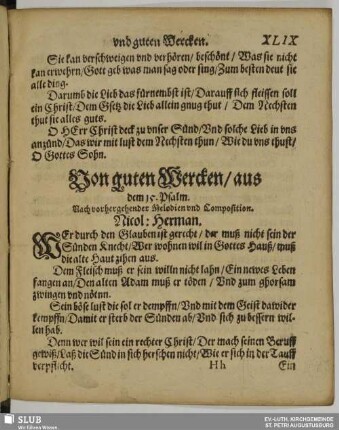 vnd guten Wercken. XLIX
Sie kan verschweigen vnd verhören / beschönt / Was sie nicht
kan erwehrn / Gott geb was man sag oder sing / Zum besten deut sie
alle ding.
Darumb die Lieb das fürnembst ist / Darauff sich fleissen soll
ein Christ / Dem Gsetz die Lieb allein gnug thut / Dem Nechsten
thut sie alles guts.
O HErr Christ deck zu vnser Sünd / Vnd solche Lieb in vns
anzünd / Das wir mit lust dem Nechsten thun / Wie du vns thust /
O Gottes Sohn.
Von guten Wercken / aus
dem 15. Psalm.
Nach vorhergehender Melodien vnd Composition.
Nicol: Herman.
WEr durch den Glauben ist gerecht / der muß nicht sein der
Sünden Knecht / Wer wohnen wil in Gottes Hauß / muß
die alte Haut zihen aus.
Dem Fleisch muß er sein willn nicht lahn / Ein newes Leben
fangen an / Den alten Adam muß er tödten / Vnd zum ghorsam
zwingen vnd nötnn.
Sein böse lust die sol er dempffn / Vnd mit dem Geist dawider
kempffn / Damit er sterb der Sünden ab / Vnd sich zu bessern wil-
len hab.
Denn wer wil sein ein rechter Christ / Der mach seinen Beruff
gewiß / Laß die Sünd in sich herschen nicht / Wie er sich in der Tauff
verpflicht. Hh Ein
SLUB
Wir führen Wissen.
EV.-LUTH. KIRCHGEMEINDE
ST. PETRI AUGUSTUSBURG